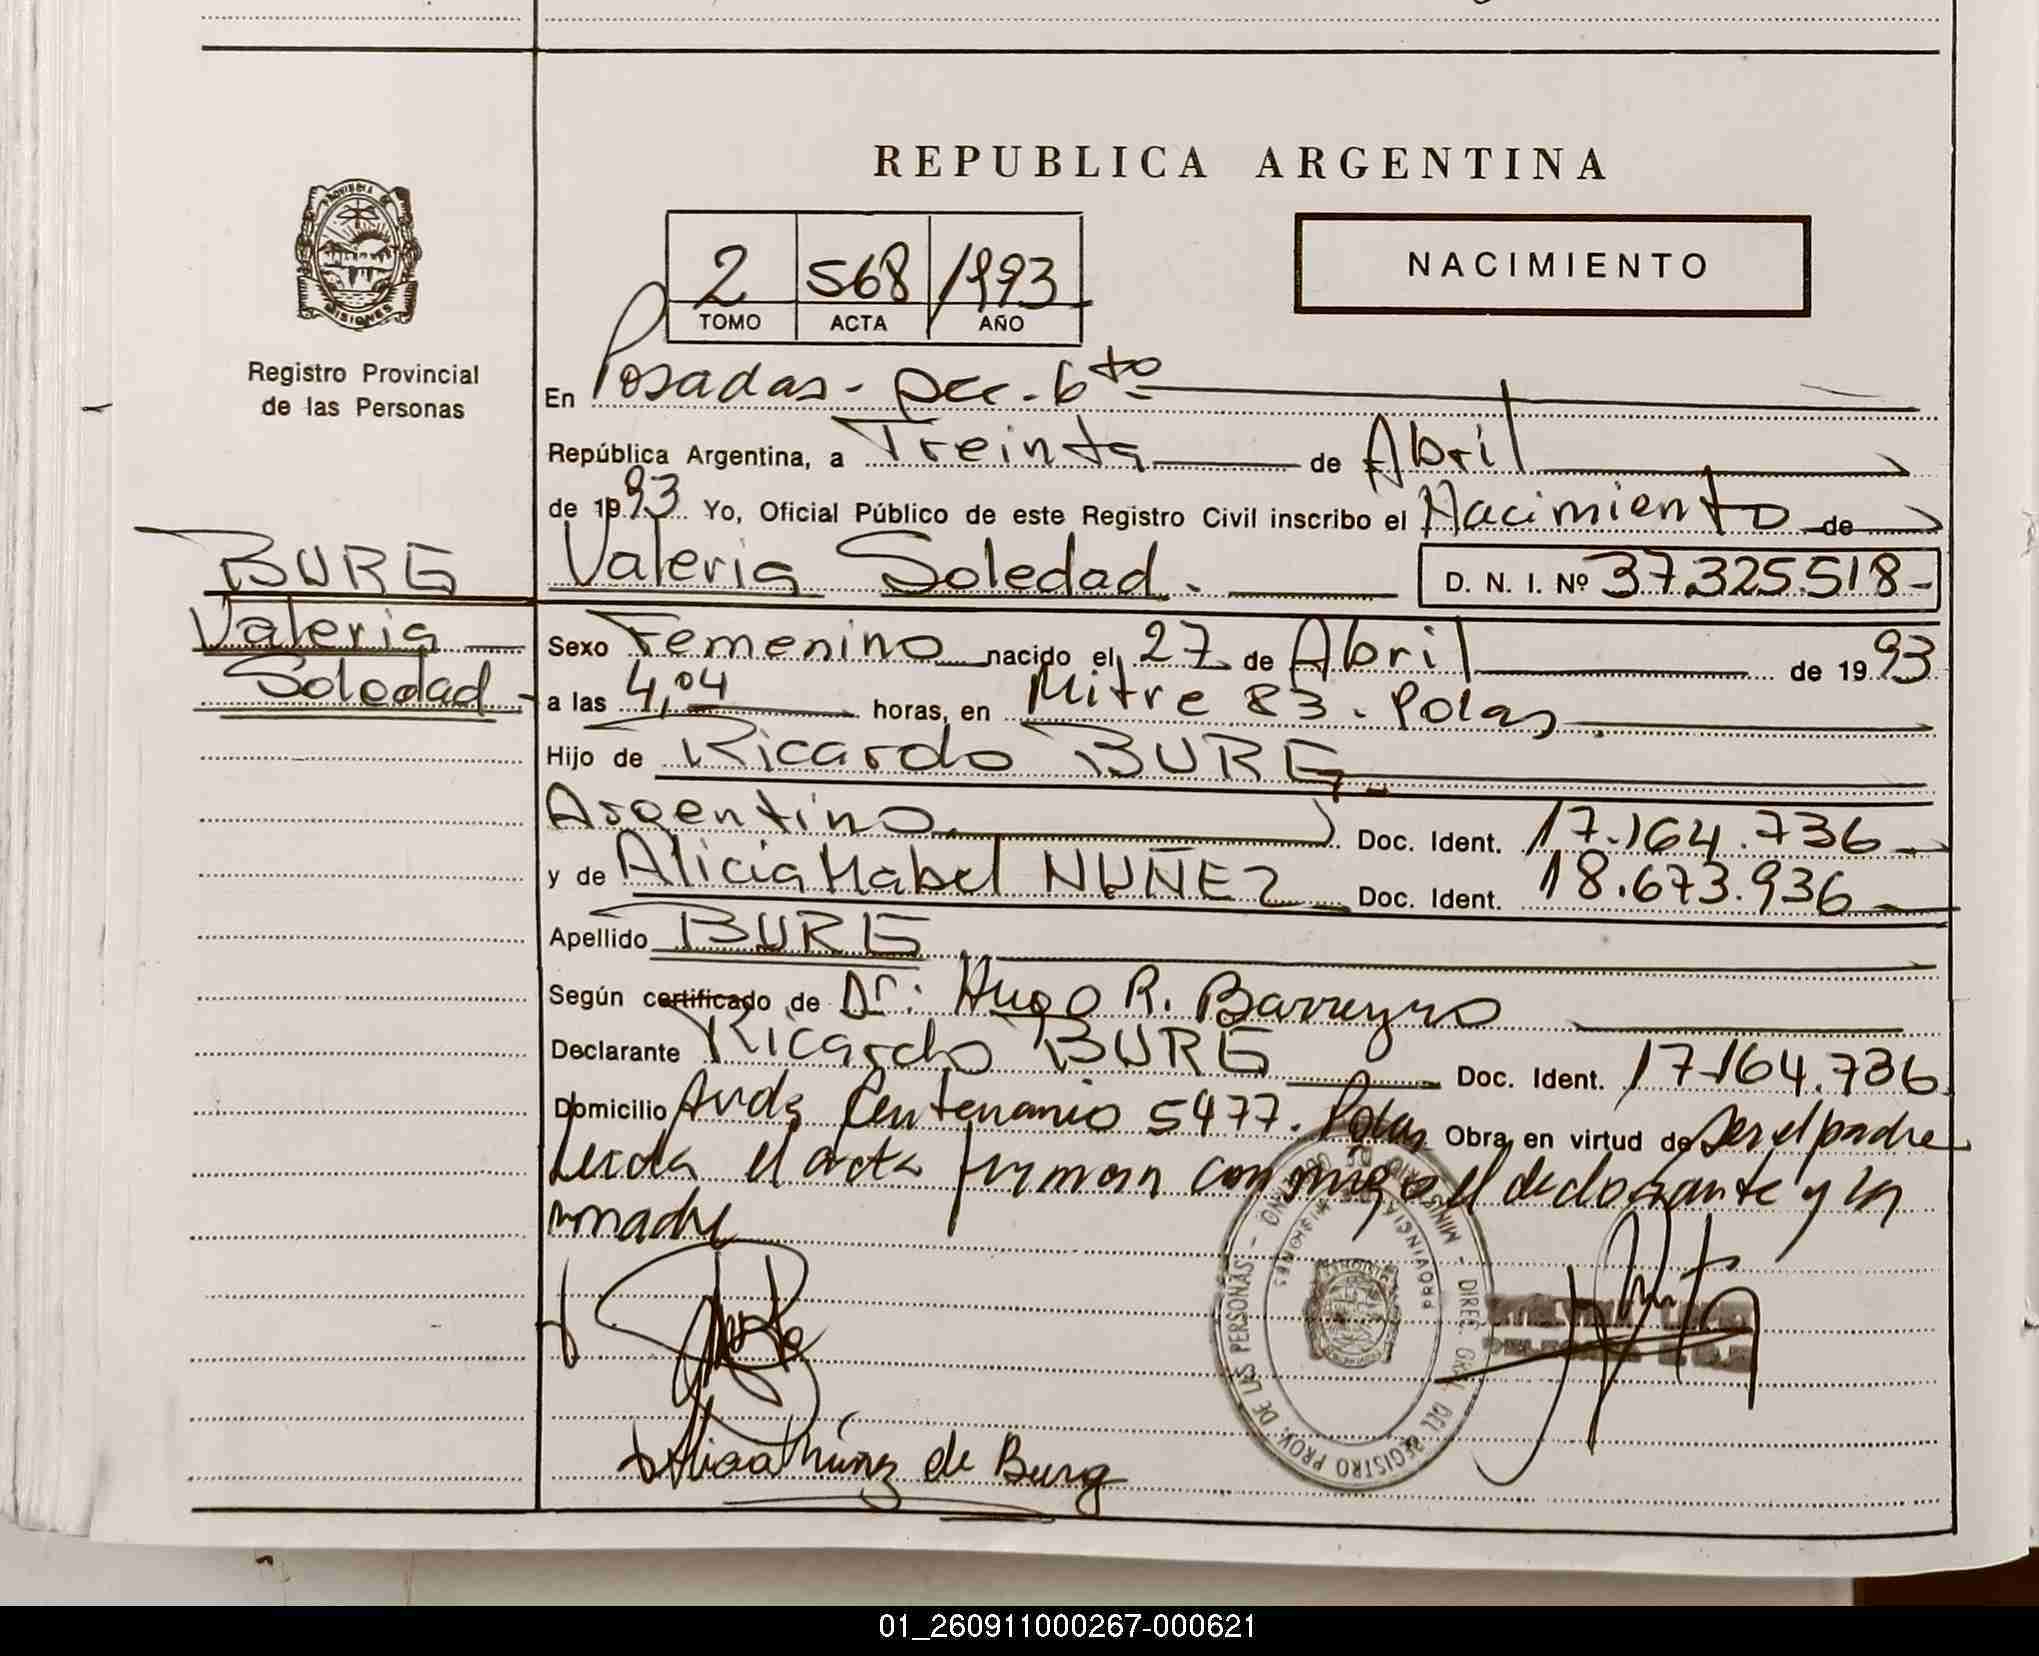 REPUBLICA ARGENTINA
PROVINCIA DE
MISIONES
2 568 1993
TOMO ACTA AÑO
NACIMIENTO
Registro Provincial
de las Personas
En Posadas - sec - 6to
República Argentina, a Treinta de Abril
de 1993 Yo, Oficial Público de este Registro Civil inscribo el Nacimiento de
Valeria Soledad. D. N. I. Nº 37.325.518-
BURG
Valeria
Soledad
Sexo Femenino nacido el 27 de Abril de 1993
a las 4,04 horas, en Mitre 83. Pdas.
Hijo de Ricardo BURG
Argentino Doc. Ident. 17.164.736
y de Alicia Mabel NUÑEZ Doc. Ident. 18.673.936
Apellido BURG
Según certificado de Dr: Hugo R. Barreyro
Declarante Ricardo BURG Doc. Ident. 17.164.736
Domicilio Avda Centenario 5477. Pdas Obra, en virtud de ser el padre
Leida el acta firman conmigo el declarante y la
madre
MINISTERIO DE GOBIERNO - DIREC. GRAL. DEL REGISTRO PROV. DE LAS PERSONAS -
PROVINCIA DE MISIONES
Alicia Núñez de Burg
01_260911000267-000621